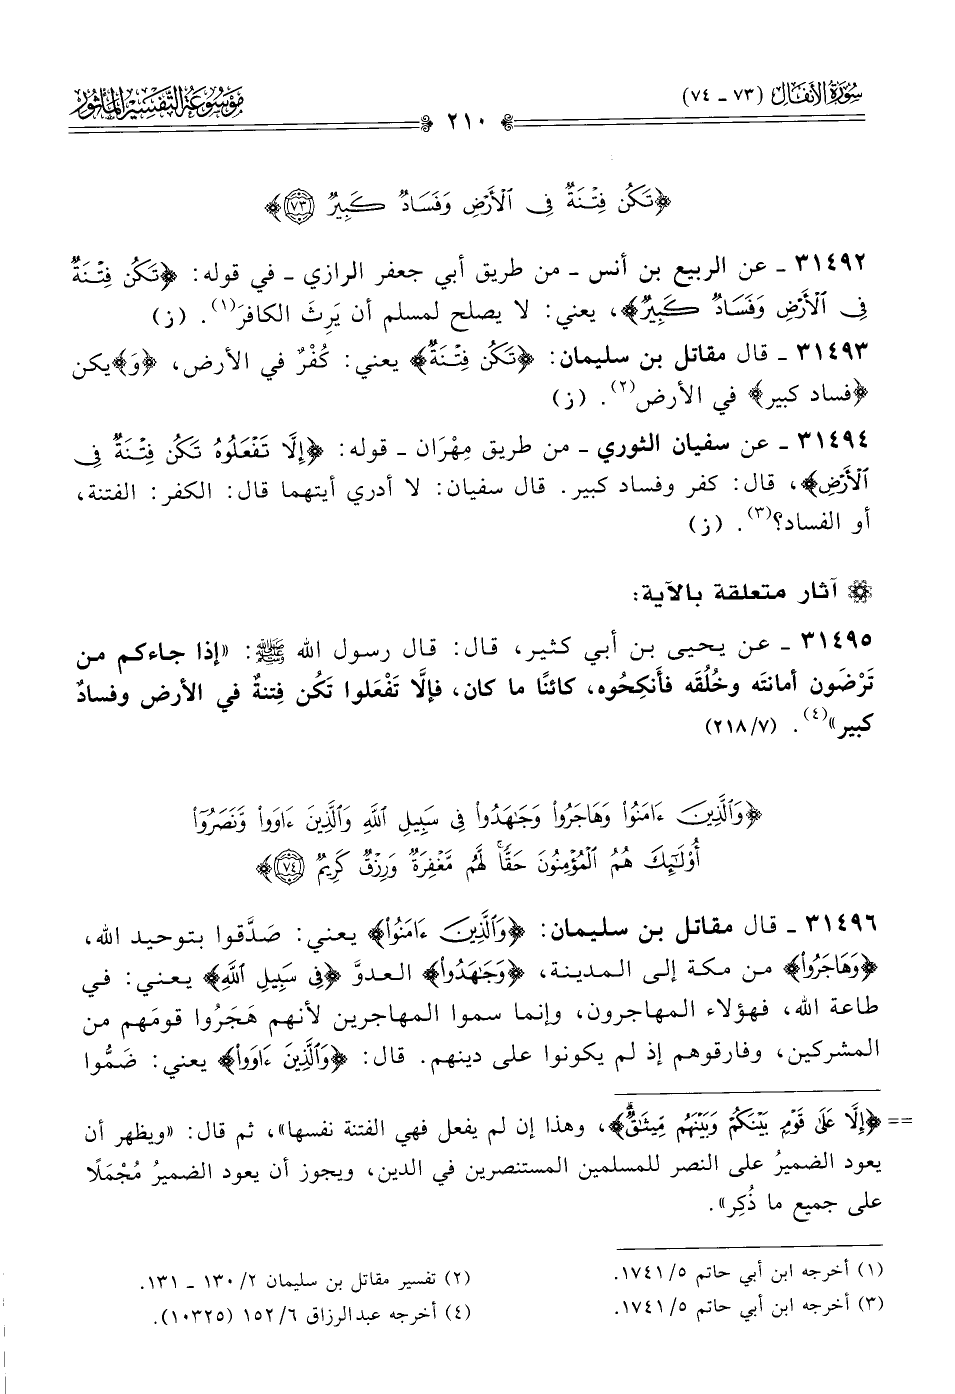 سورة الأنفال (٧٣ - ٧٤)
موسوعة التفسير المأثور
٢١٠
﴿تَكُن فِتْنَةٌ فِى ٱلْأَرْضِ وَفَسَادٌ كَبِيرٌ ۝٧٣﴾
٣١٤٩٢ - عن الربيع بن أنس - من طريق أبي جعفر الرازي - في قوله: ﴿تَكُن فِتْنَةٌ
فِى ٱلْأَرْضِ وَفَسَادٌ كَبِيرٌ﴾، يعني: لا يصلح لمسلم أن يَرِثَ الكافرَ(١). (ز)
٣١٤٩٣ - قال مقاتل بن سليمان: ﴿تَكُن فِتْنَةٌ﴾ يعني: كُفْرٌ في الأرض، ﴿وَ﴾يكن
﴿فساد كبير﴾ في الأرض(٢). (ز)
٣١٤٩٤ - عن سفيان الثوري - من طريق مِهْرَان - قوله: ﴿إِلَّا تَفْعَلُوهُ تَكُن فِتْنَةٌ فِى
ٱلْأَرْضِ﴾، قال: كفر وفساد كبير. قال سفيان: لا أدري أيتهما قال: الكفر: الفتنة،
أو الفساد؟(٣). (ز)
آثار متعلقة بالآية:
٣١٤٩٥ - عن يحيى بن أبي كثير، قال: قال رسول الله ﷺ: «إذا جاءكم من
تَرْضَون أمانتَه وخُلُقَه فأَنكِحُوه، كائنًا ما كان، فإلَّا تَفْعَلوا تَكُن فِتنةٌ في الأرض وفسادٌ
كبير»(٤). (٧/ ٢١٨)
﴿وَٱلَّذِينَ ءَامَنُوا۟ وَهَاجَرُوا۟ وَجَـٰهَدُوا۟ فِى سَبِيلِ ٱللَّهِ وَٱلَّذِينَ ءَاوَوا۟ وَّنَصَرُوٓا۟
أُو۟لَـٰٓئِكَ هُمُ ٱلْمُؤْمِنُونَ حَقًّا ۚ لَّهُم مَّغْفِرَةٌ وَرِزْقٌ كَرِيمٌ ۝٧٤﴾
٣١٤٩٦ - قال مقاتل بن سليمان: ﴿وَٱلَّذِينَ ءَامَنُوا۟﴾ يعني: صَدَّقوا بتوحيد الله،
﴿وَهَاجَرُوا۟﴾ من مكة إلى المدينة، ﴿وَجَـٰهَدُوا۟﴾ العدوَّ ﴿فِى سَبِيلِ ٱللَّهِ﴾ يعني: في
طاعة الله، فهؤلاء المهاجرون، وإنما سموا المهاجرين لأنهم هَجَرُوا قومَهم من
المشركين، وفارقوهم إذ لم يكونوا على دينهم. قال: ﴿وَٱلَّذِينَ ءَاوَوا۟﴾ يعني: ضَمُّوا
== ﴿إِلَّا عَلَىٰ قَوْمٍ بَيْنَكُمْ وَبَيْنَهُم مِّيثَـٰقٌ ۗ﴾، وهذا إن لم يفعل فهي الفتنة نفسها»، ثم قال: «ويظهر أن
يعود الضميرُ على النصر للمسلمين المستنصرين في الدين، ويجوز أن يعود الضميرُ مُجْمَلًا
على جميع ما ذُكِر».
(١) أخرجه ابن أبي حاتم ٥/ ١٧٤١.
(٢) تفسير مقاتل بن سليمان ٢/ ١٣٠ - ١٣١.
(٣) أخرجه ابن أبي حاتم ٥/ ١٧٤١.
(٤) أخرجه عبدالرزاق ٦/ ١٥٢ (١٠٣٢٥).